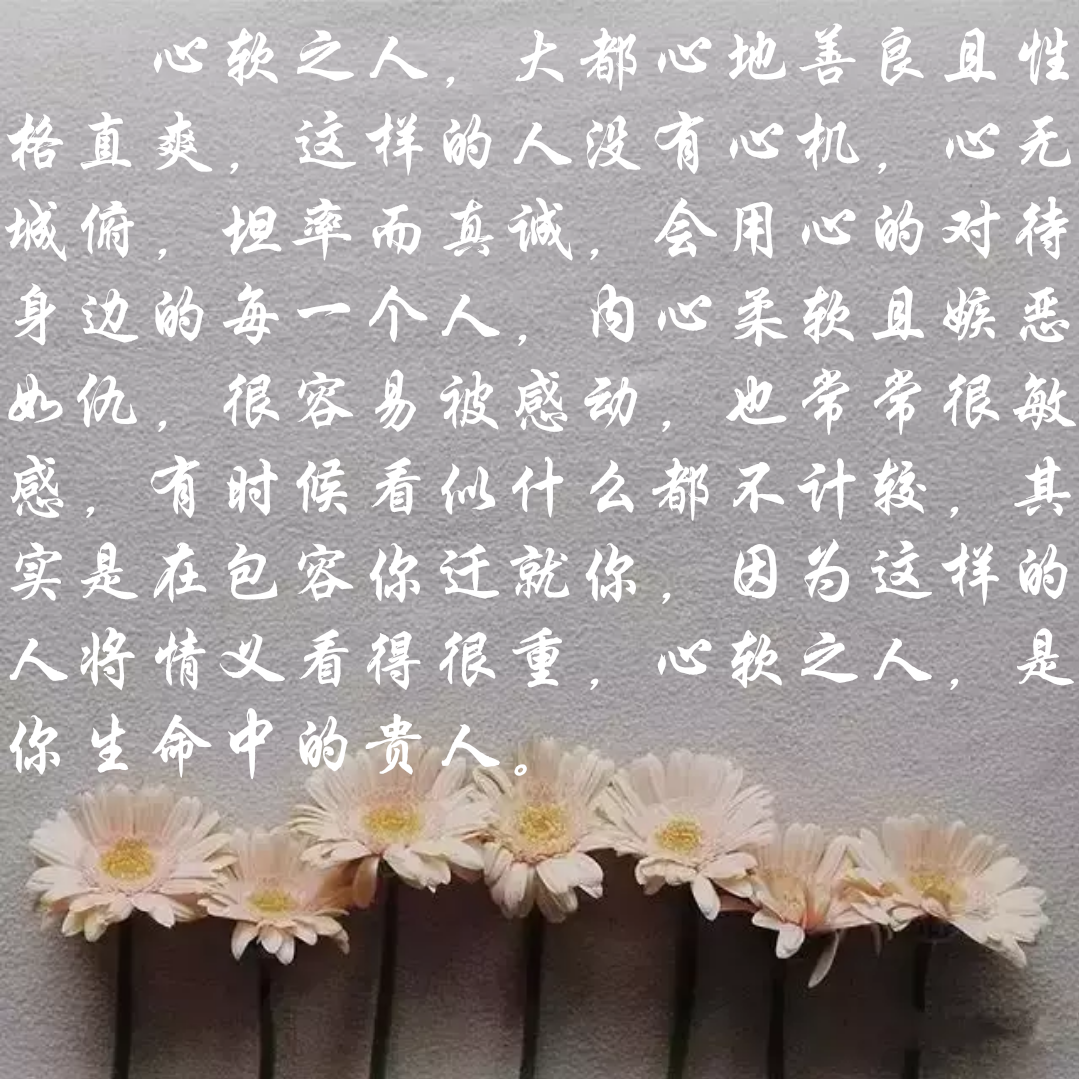 心软之人，大都心地善良且性
格直爽，这样的人没有心机，心无
城俯，坦率而真诚，会用心的对待
身边的每一个人，内心柔软且嫉恶
如仇，很容易被感动，也常常很敏
感，有时候看似什么都不计较，其
实是在包容你迁就你，因为这样的
人将情义看得很重，心软之人，是
你生命中的贵人。